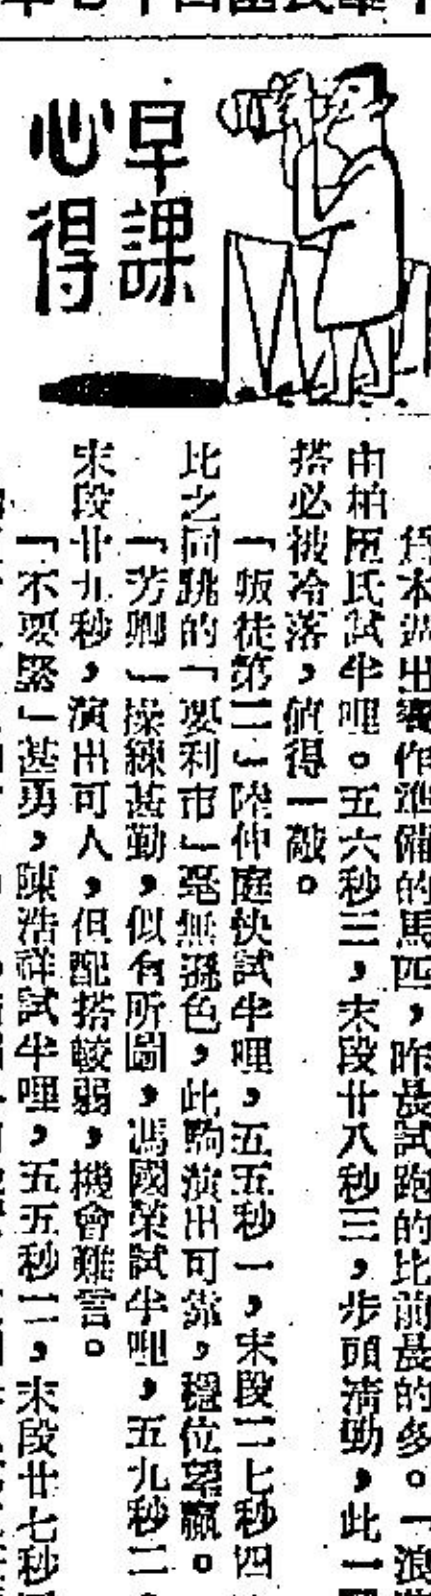 早課
心得
爲本週出賽作準備的馬匹，昨晨試跑的比前晨的多。「浪
由柏 氏試半哩。五六秒三，末段廿八秒三，步頭清勁，此一
搭必被冷落，値得一敲。
「叛徒第二」陸仲庭快試半哩，五五秒一，末段二七秒四
比之同跳的「要利市」毫無遜色，此駒演出可靠，穩位望贏。
「芳卿」操練甚勤，似有所圖，馮國榮試半哩，五九秒二
末段廿九秒，演出可人，但配搭較弱，機會難言。
「不要緊」甚勇，陳浩祥試半哩，五五秒二，末段廿七秒